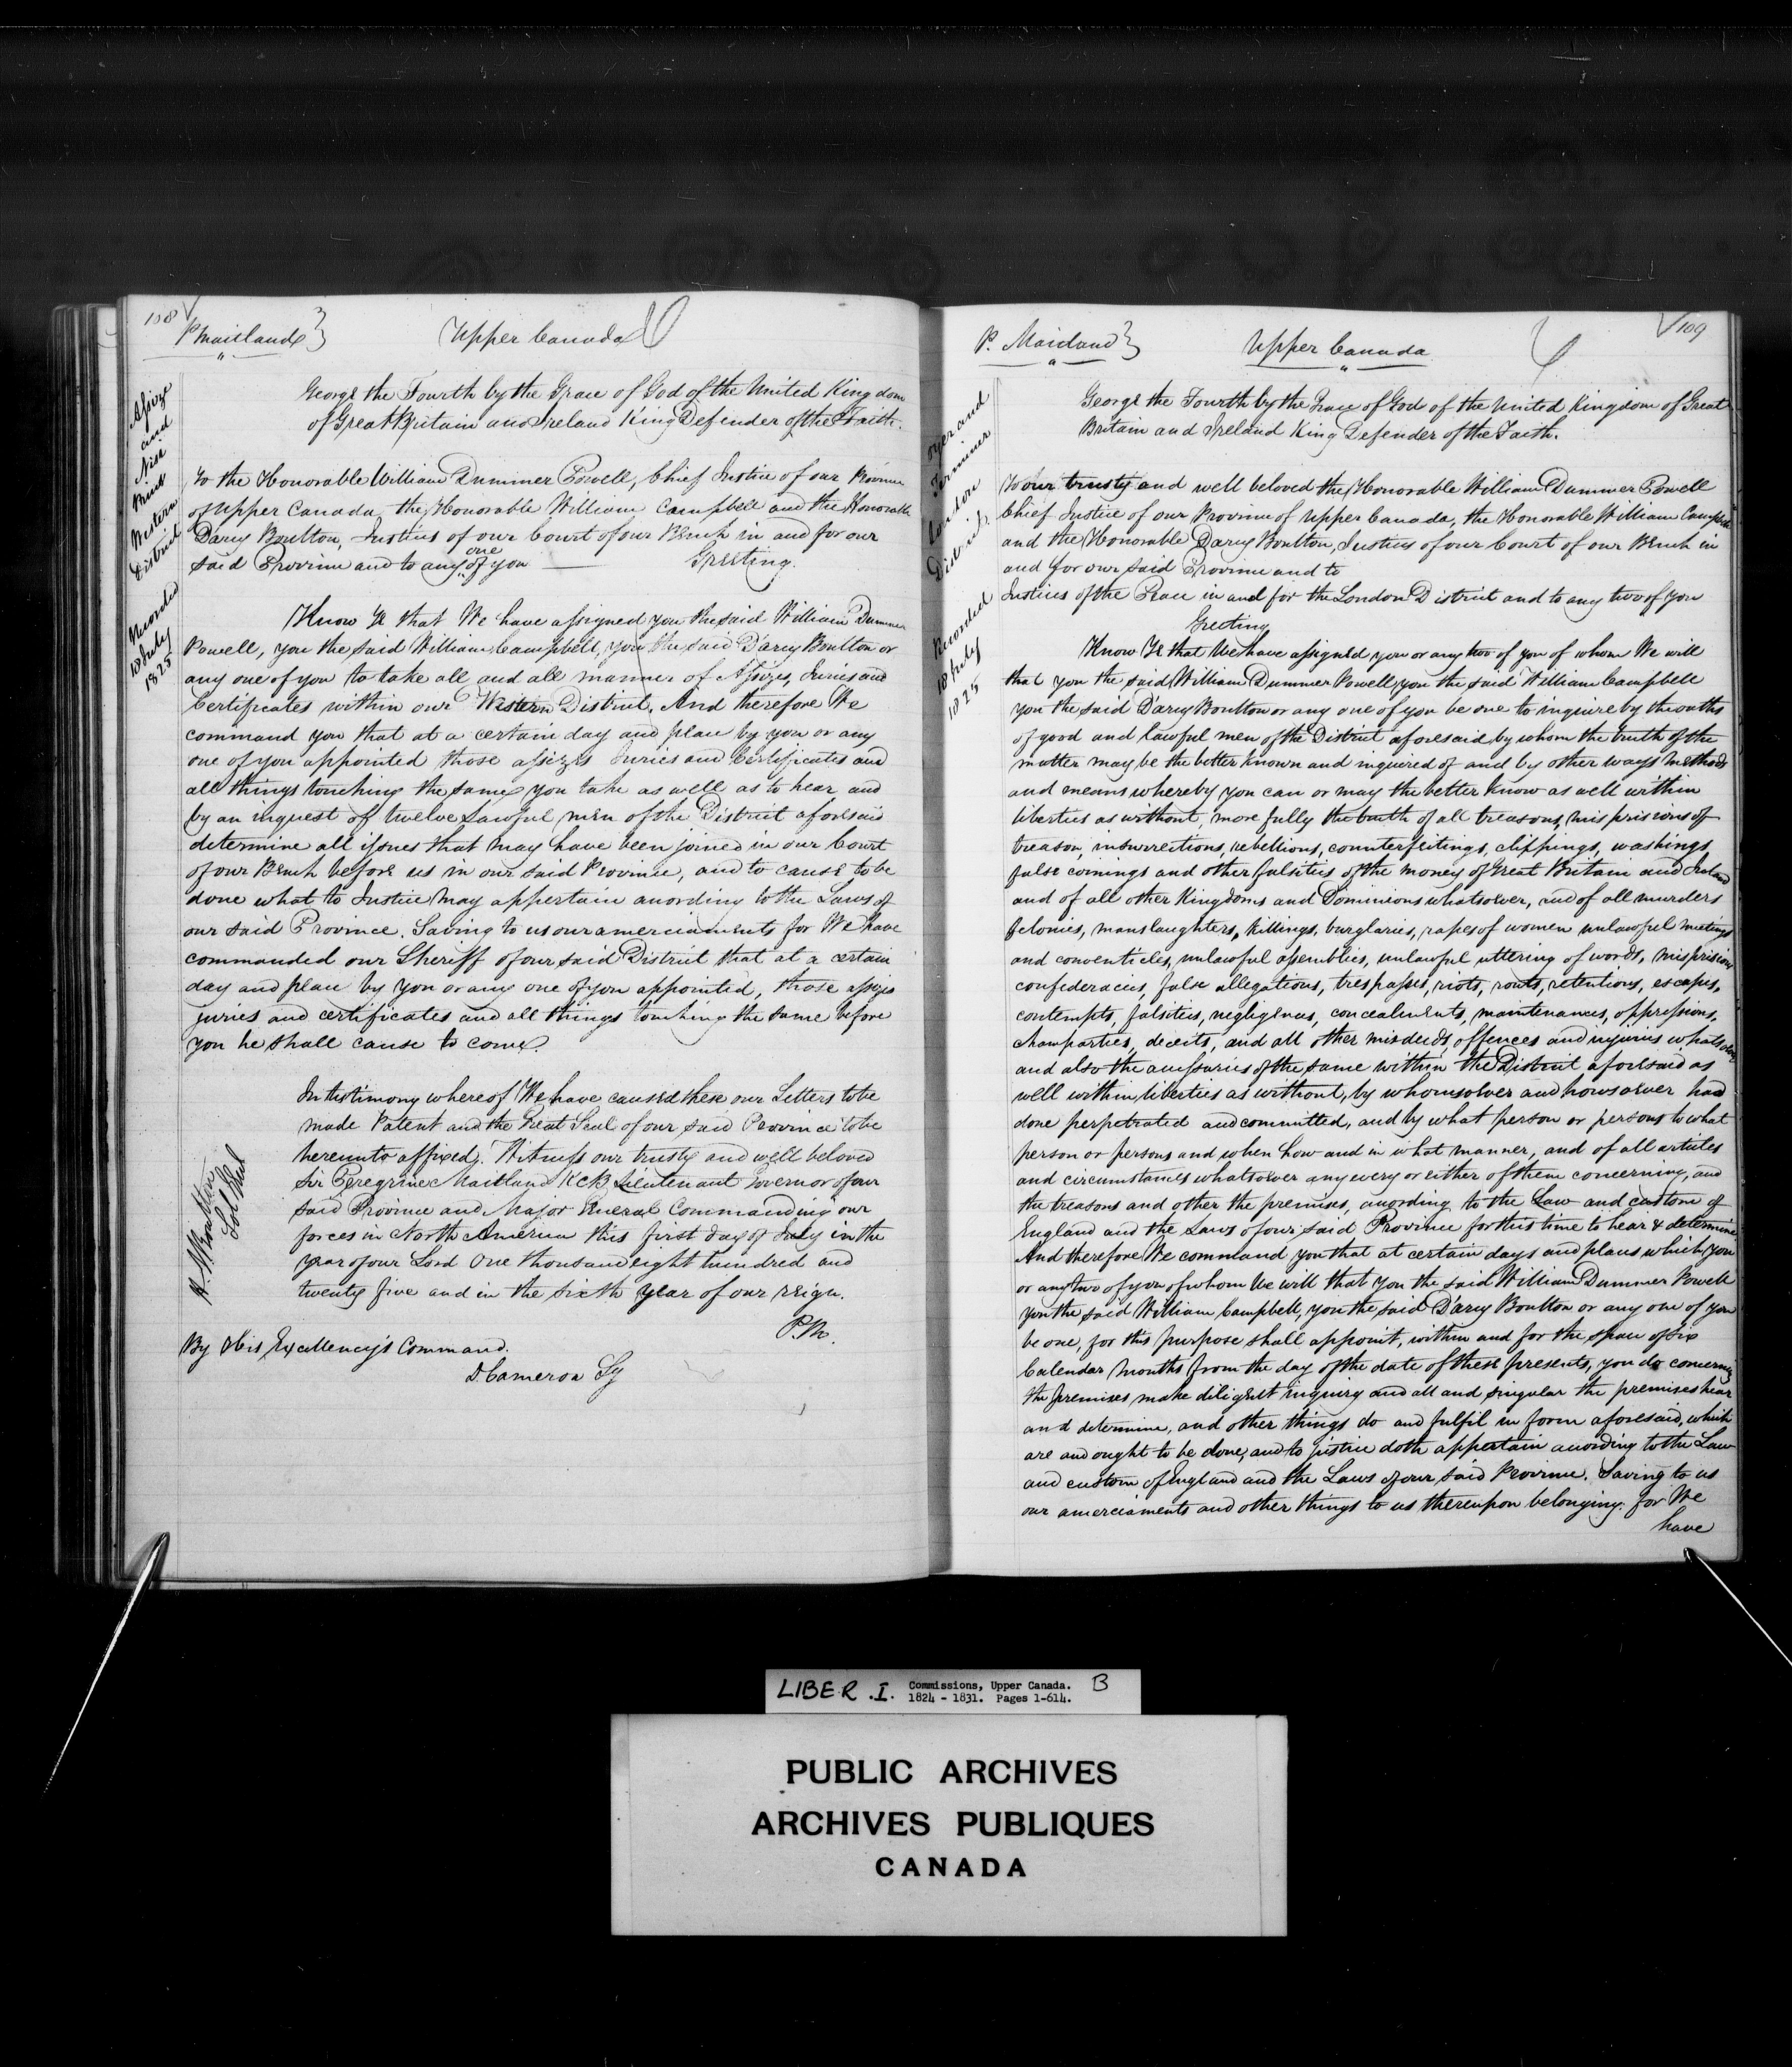 108
P Maitland }
Upper Canada
Assize
and
Nisi
Prius
Western
District
Recorded
10 July
1825
George the Fourth by the Grace of God of the United Kingdom
of Great Britain and Ireland King Defender of the Faith.
To the Honorable William Dummer Powell, Chief Justice of our Province
of Upper Canada, the Honorable William Campbell and the Honorable
D'arcy Boulton, Justices of our Court of our Bench in and for our
said Province and to any one of you Greeting.
Know Ye that We have assigned you the said William Dummer
Powell, you the said William Campbell, you the said D'arcy Boulton or
any one of you to take all and all manner of Assizes, Juries and
Certificates within our Western District, And therefore We
command you that at a certain day and place by you or any
one of you appointed those assizes Juries and Certificates and
all things touching the same you take as well as to hear and
by an inquest of twelve Lawful men of the District aforesaid
determine all issues that may have been joined in our Court
of our Bench before us in our said Province, and to cause to be
done what to Justice may appertain according to the Laws of
our said Province. Saving to us our amerciaments for We have
commanded our Sheriff of our said District that at a certain
day and place by you or any one of you appointed, those assizes
juries and certificates and all things touching the same before
you he shall cause to come.
In testimony whereof We have caused these our Letters to be
made Patent and the Great Seal of our said Province to be
hereunto affixed. Witness our trusty and well beloved
Sir Peregrine Maitland KCB Lieutenant Governor of our
said Province and Major General Commanding our
forces in North America this first day of July in the
year of our Lord One thousand eight hundred and
twenty five and in the sixth year of our reign.
P.M.
H. J. Boulton
Sol Genl
By His Excellency's Command.
D. Cameron Sy
109
P. Maitland }
Upper Canada
Oyer and
Terminer
London
District
Recorded
10 July
1825
George the Fourth by the Grace of God of the United Kingdom of Great
Britain and Ireland King Defender of the Faith.
To our trusty and well beloved the Honorable William Dummer Powell
Chief Justice of our Province of Upper Canada, the Honorable William Campbell
and the Honorable D'arcy Boulton, Justices of our Court of our Bench in
and for our said Province and to
Justices of the Peace in and for the London District and to any two of you
Greeting
Know Ye that We have assigned you or any two of you of whom We will
that you the said William Dummer Powell, you the said William Campbell
you the said D'arcy Boulton or any one of you be one to inquire by the oaths
of good and lawful men of the District aforesaid by whom the truth of the
matter may be the better known and inquired of and by other ways methods
and means whereby you can or may the better know as well within
liberties as without, more fully the truth of all treasons, misprisions of
treason, insurrections, rebellions, counterfeitings, clippings, washings,
false coinings and other falsities of the money of Great Britain and Ireland
and of all other Kingdoms and Dominions whatsoever, and of all murders
felonies, manslaughters, killings, burglaries, rapes of women unlawful meetings
and conventicles, unlawful assemblies, unlawful uttering of words, misprisions
confederacies, false allegations, trespasses, riots, routs, retentions, escapes,
contempts, falsities, negligences, concealments, maintenances, oppressions,
champarties, deceits, and all other misdeeds, offences and injuries whatsoever
and also the accessaries of the same within the District aforesaid as
well within liberties as without, by whomsoever and howsoever had
done perpetrated and committed, and by what person or persons to what
person or persons and when how and in what manner, and of all articles
and circumstances whatsoever any every or either of them concerning, and
the treasons and other the premises, according to the Law and custom of
England and the Laws of our said Province for this time to hear & determine
And therefore We command you that at certain days and places which you
or any two of you of whom We will that you the said William Dummer Powell
you the said William Campbell, you the said D'arcy Boulton or any one of you
be one, for this purpose shall appoint, within and for the space of six
Calendar months from the day of the date of these presents, you do concerning
the premises make diligent inquiry and all and singular the premises hear
and determine, and other things do and fulfil in form aforesaid, which
are and ought to be done, and to justice doth appertain according to the Law
and custom of England and the Laws of our said Province. Saving to us
our amerciaments and other things to us thereupon belonging. for We
have
LIBER .I. Commissions, Upper Canada. B
1824 - 1831. Pages 1-614.
PUBLIC ARCHIVES
ARCHIVES PUBLIQUES
CANADA